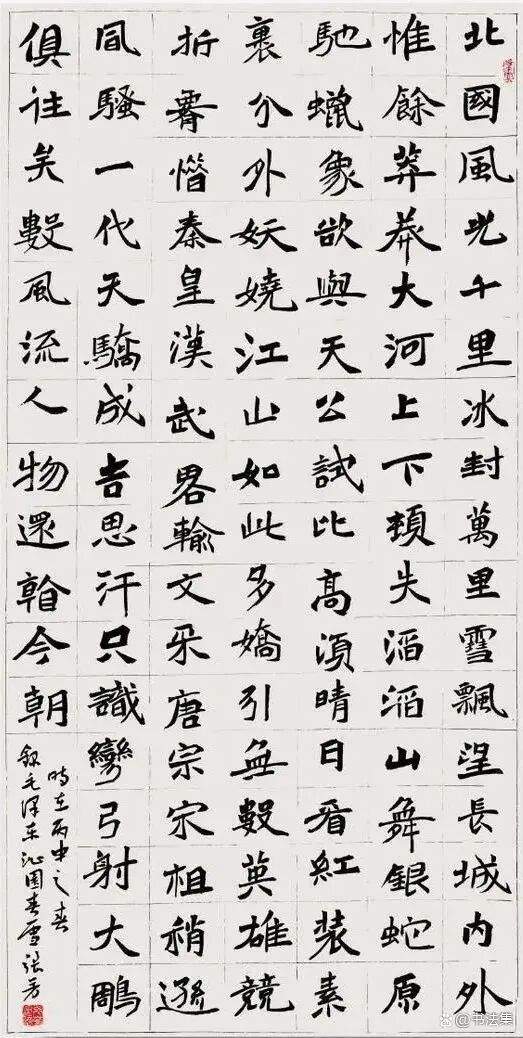 北國風光千里冰封萬里雪飄望長城内外
惟餘莽莽大河上下頓失滔滔山舞銀蛇原
馳蠟象欲與天公試比高須晴日看紅裝素
裹分外妖嬈江山如此多嬌引無數英雄競
折腰惜秦皇漢武畧輸文采唐宗宋祖稍遜
風騷一代天驕成吉思汗只識彎弓射大鵰
俱往矣數風流人物還看今朝
時在丙申之春
錄毛澤東沁園春雪張芳
书法集